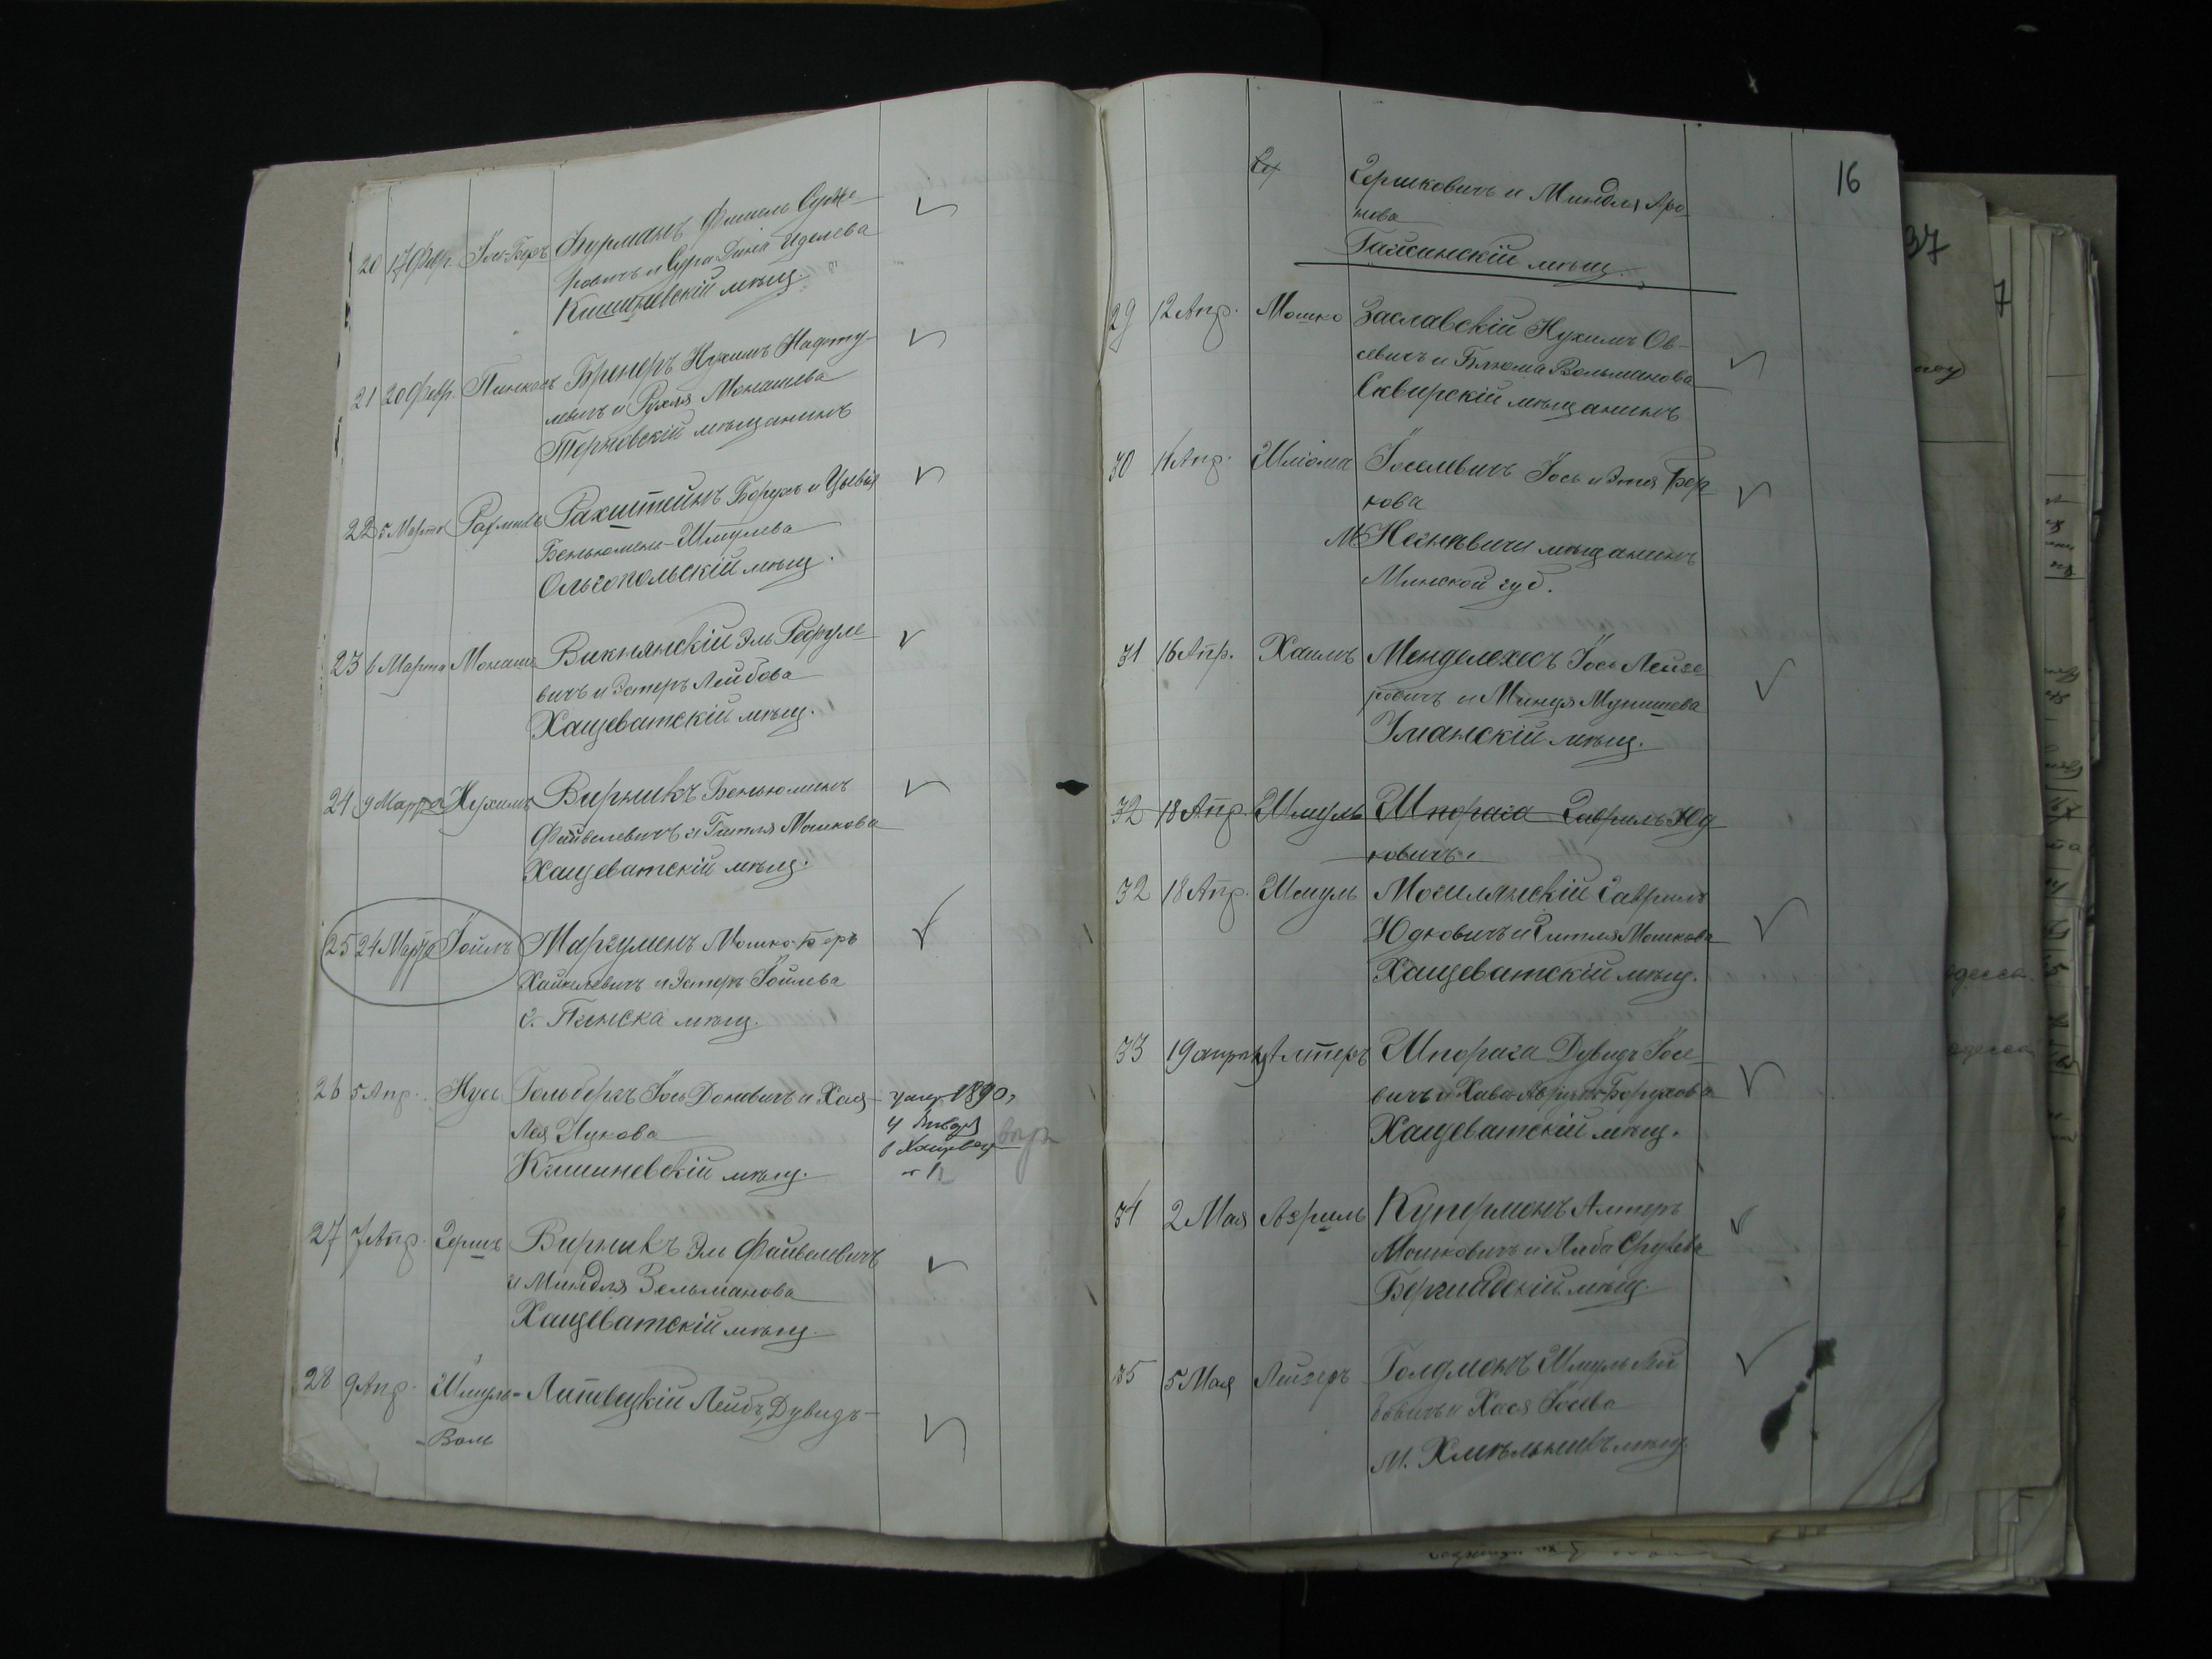 20 17 Февр. Іось-Беръ Фурманъ Фишель Сухе-
ровичъ и Сура Дина Иделева
Кишиневскій мѣщ.
21 20 Февр. Пинхасъ Бринеръ Нухимъ Нафту-
левичъ и Рухля Монашева
Терновскій мѣщанинъ
22 5 Марта Рахмиль Рахштейнъ Борухъ и Цывья
Беньюмени-Шмулева
Ольгопольскій мѣщ.
23 6 Марта Монаше Викнянскій Эль Рефуле-
вичъ и Эстеръ Лейбова
Хащеватскій мѣщ.
24 9 Марта Нухимъ Вирникъ Беньюминъ
Файвелевичъ и Гитля Мошкова
Хащеватскій мѣщ.
25 24 Марта Іойлъ Маргулинъ Мошко-Беръ
Хайкелевичъ и Эстеръ Іойлева
г. Пинска мѣщ.
26 5 Апр. Нусь Гольбергъ Іось Доновичъ и Хая-
Лея Ицкова
Кишиневскій мѣщ.
умер 1890 г
4 Января
в Хащеват
27 7 Апр. Гершъ Вирникъ Эль Файвелевичъ
и Миндля Зельманова
Хащеватскій мѣщ.
28 9 Апр. Шмуль- Липовецкій Лейбъ, Дувидъ-
-Волъ
16
Гершковичъ и Миндля Аро-
нова
Гайсинскій мѣщ.
29 12 Апр. Мошко Заславскій Нухимъ Ов-
сеевичъ и Блюма Вольманова
Сквирскій мѣщанинъ
30 11 Апр. Шліома Іоселевичъ Іось и Этя Бер-
кова
М. Негневичи мѣщанинъ
Минской губ.
31 16 Апр. Хаимъ Менделехесъ Іось Лейзе-
ровичъ и Миндя Мунишева
Уманскій мѣщ.
32 18 Апр. Шмуль Шпорага Гаврилъ Юд-
ковичъ.
32 18 Апр. Шмуль Могилянскій Гаврилъ
Юдковичъ и Гитля Мошкова
Хащеватскій мѣщ.
33 19 апреля Алтеръ Шпорага Дувидъ Іосе-
вичъ и Хава Борухова
Хащеватскій мѣщ.
34 2 Мая Азриль Куперманъ Алтеръ
Мошковичъ и Либа Срулева
Бершадскій мѣщ.
35 5 Мая Лейзеръ Голдманъ Шмуль Лей-
бовичъ и Хася Іосева
м. Хмѣльникъ мѣщ.
37
7
одесса
одесса